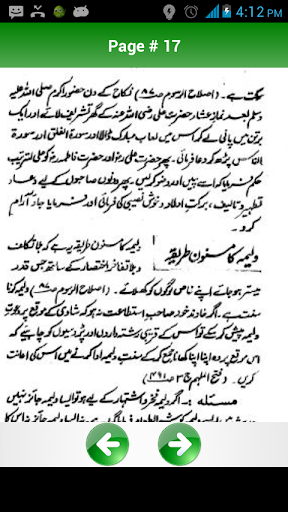 4:12 PM
Page # 17
سکت ہے۔ (اصلاح الرسوم ص۸۷) نکاح کے دن حضور اکرم صلی اللہ علیہ
وسلم بعد نماز عشاء حضرت علی رضی اللہ عنہ کے گھر تشریف لائے اور ایک
برتن میں پانی لے کر اس میں لعاب مبارک ڈالا اور سورۃ الفلق اور سورۃ
الناس پڑھ کر دعا فرمائی۔ پھر حضرت علی رضؓ اور حضرت فاطمہ رضؓ کو علی الترتیب
حکم فرمایا کہ اسے پئیں اور وضو کرلیں۔ پھر دونوں صاحبوں کے لیے دعاء
تطہیر و تالیف، برکت اولاد و خوش نصیبی کی فرمائی اور فرمایا جاؤ آرام
کرو۔
ولیمہ کا مسنون طریقہ
ولیمہ کا مسنون طریقہ یہ ہے کہ بلا تکلف
و بلا تفاخر اختصار کے ساتھ جس قدر
میسر ہوجائے اپنے خاص لوگوں کو کھلائے۔ (اصلاح الرسوم ص) ولیمہ کرنا
سنت ہے۔ اگر خاوند خود صاحب استطاعت نہ ہو کہ شادی کے موقع پر دعوت
ولیمہ پیش کرسکے تو اس کے قریبی رشتہ داروں اور پڑوسیوں کو چاہیے کہ
اس موقع پر وہ اپنا اپنا کھانا جمع کرکے سنت ولیمہ ادا کرنے میں اس کی اعانت
کریں۔ (فتح الملہم ج۳ ص۴۹۱)
مسئلہ:۔ اگر ولیمہ فخر و اشتہار کے لیے ہو تو ایسا ولیمہ جائز نہیں